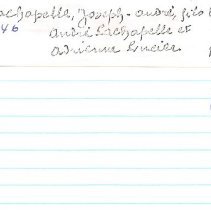 Lachapelle, Joseph-André, fils
46 André Lachapelle et
Adrienne Lussier.